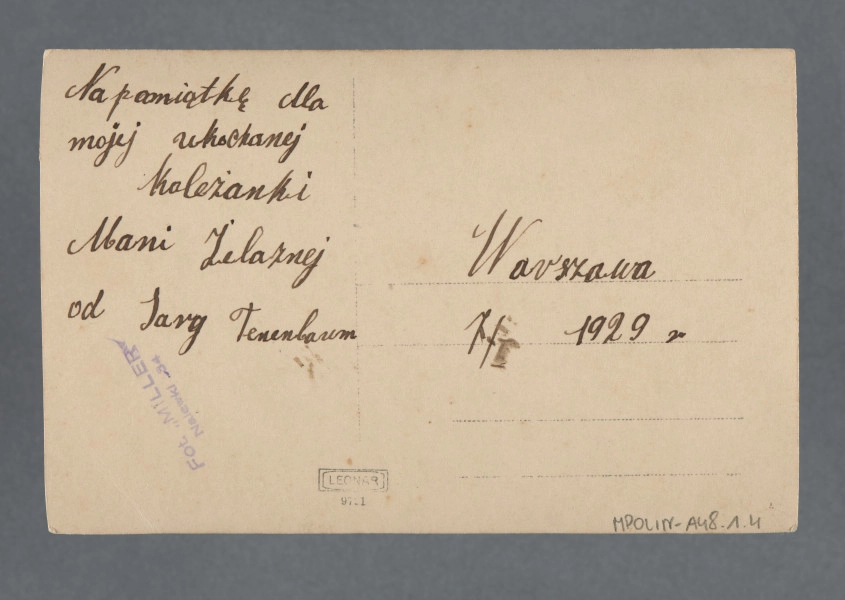 Na pamiątkę dla
mojej ukochanej
koleżanki
Mani Żelaznej
od Sary Tenenbaum
Warszawa
1929 r
Fot. „MILLER"
34
LEONAR
MPOLIN-A48.1.4